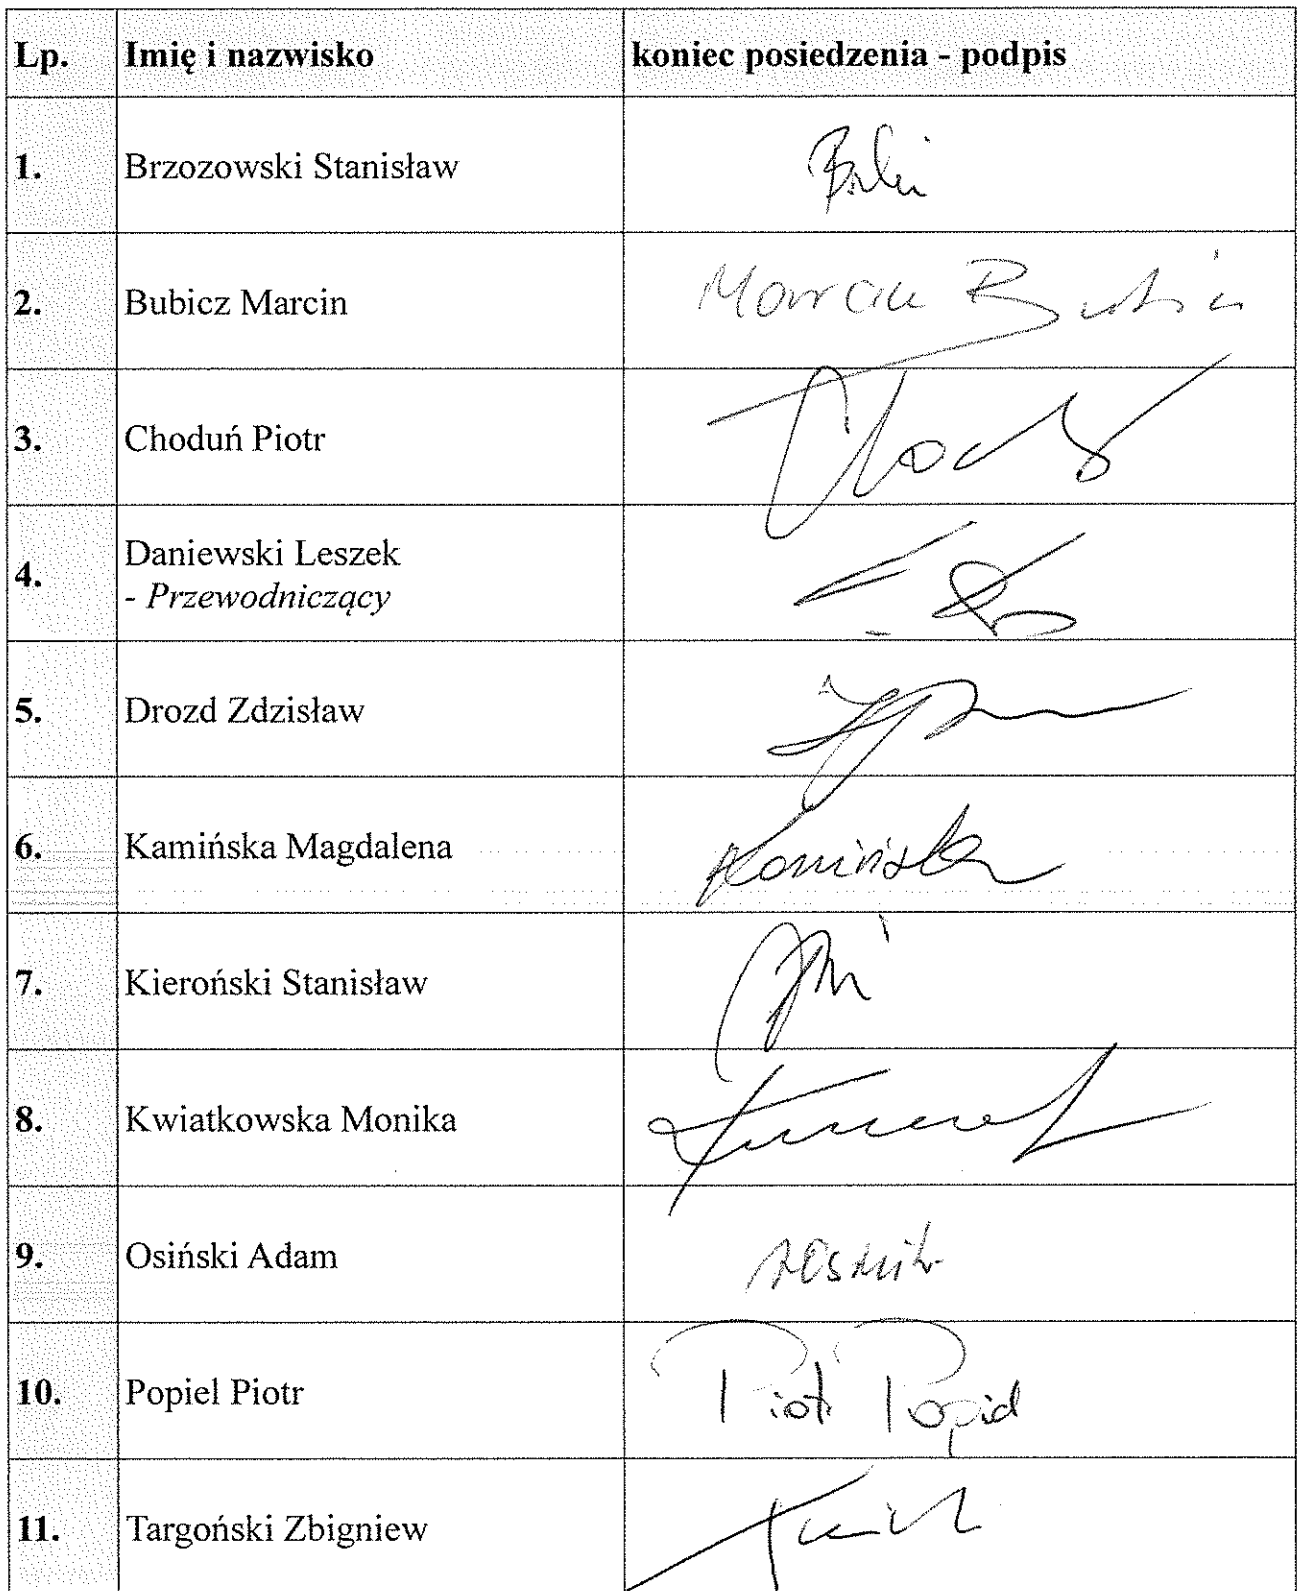 Lp. Imię i nazwisko koniec posiedzenia - podpis
1. Brzozowski Stanisław
2. Bubicz Marcin Marcin Bubicz
3. Choduń Piotr
4. Daniewski Leszek
- Przewodniczący
5. Drozd Zdzisław
6. Kamińska Magdalena Kamińska
7. Kieroński Stanisław
8. Kwiatkowska Monika
9. Osiński Adam
10. Popiel Piotr Piotr Popiel
11. Targoński Zbigniew